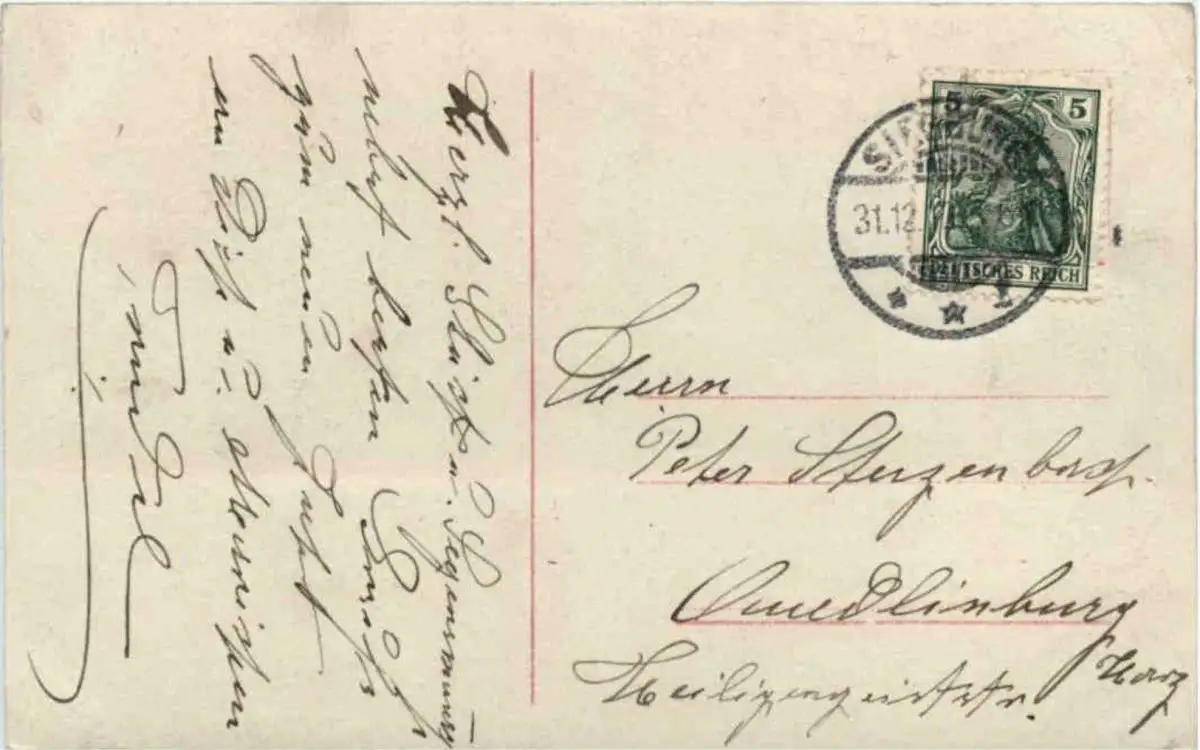 Herzl. Glück- u. Segenswunsch
nebst besten Grüßen
zum neuen Jahr
an Dich u.
5 5
SIEGBURG
31.12.
DEUTSCHES REICH
Herrn
Peter
Quedlinburg
Harz
Heiligegeiststr.